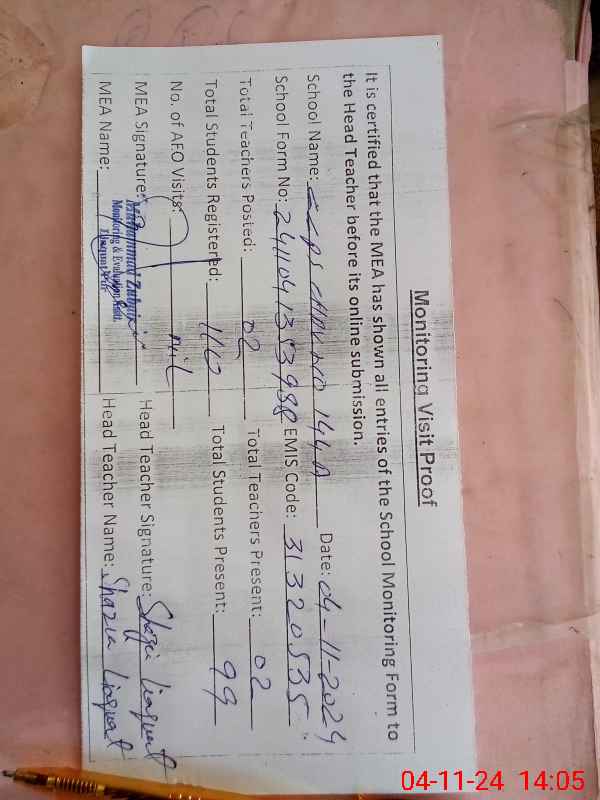 Monitoring Visit Proof
It is certified that the MEA has shown all entries of the School Monitoring Form to
the Head Teacher before its online submission.
School Name: CHAK NO 144A Date: 04-11-2024
School Form No: EMIS Code: 31320535
Total Teachers Posted: 02 Total Teachers Present: 02
Total Students Registered: 110 Total Students Present: 99
No. of AEO Visits: nil
MEA Signature: Head Teacher Signature: Shazia Liaquat
MEA Name: Muhammad Head Teacher Name: Shazia Liaquat
Monitoring & Evaluation Asstt.
04-11-24 14:05